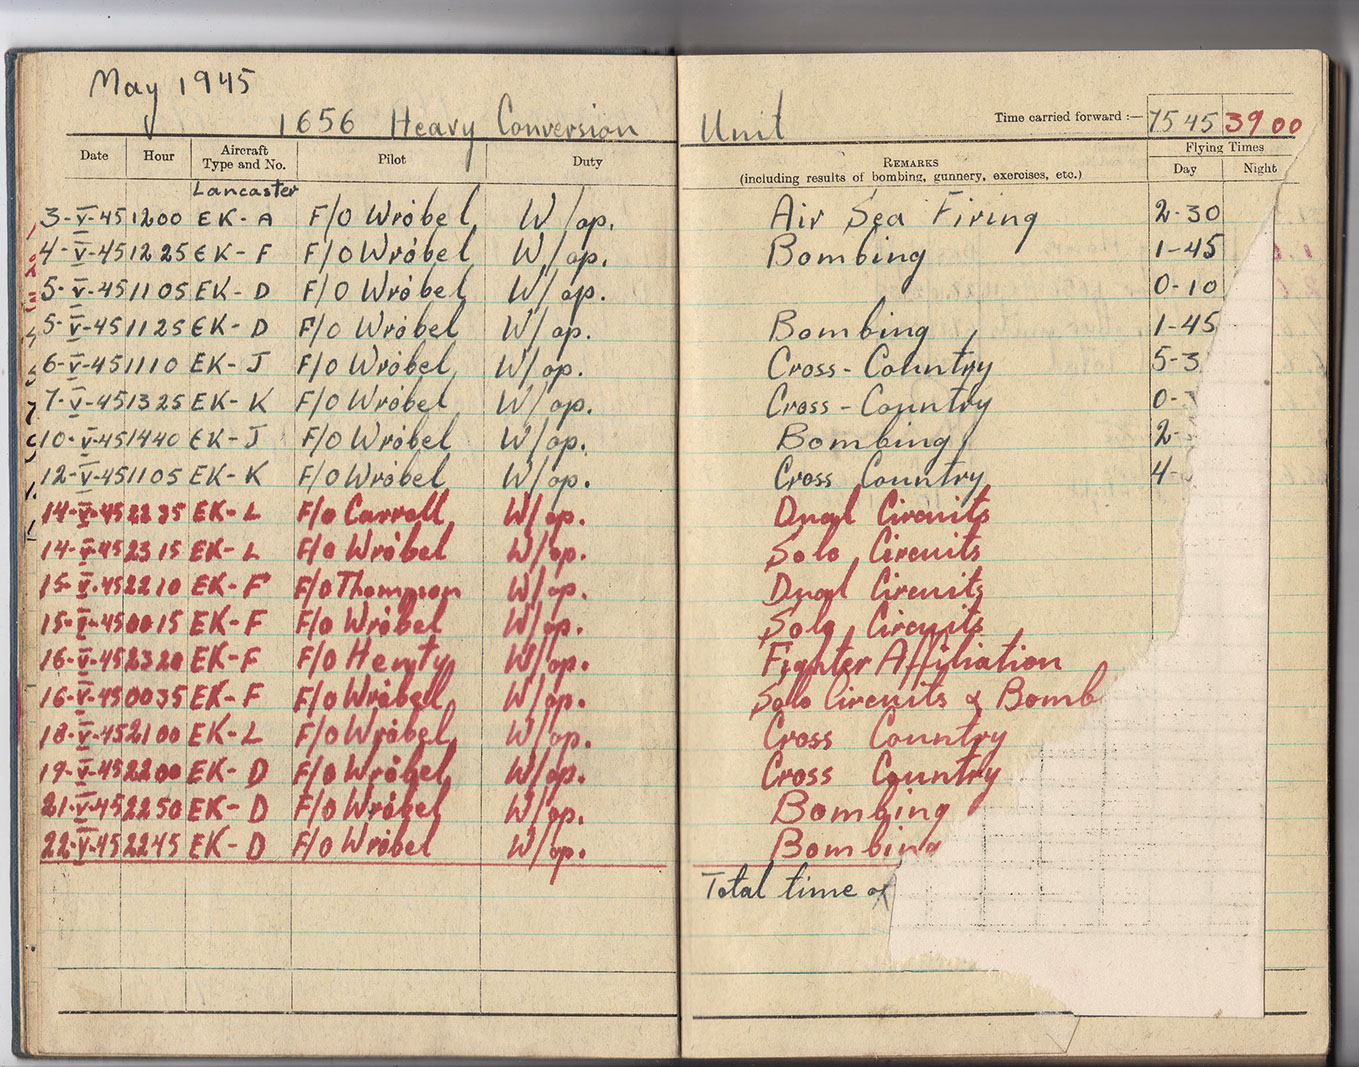 May 1945
1656 Heavy Conversion Unit Time carried forward :— 75 45 39 00
Flying Times
Date Hour Aircraft Type and No. Pilot Duty REMARKS (including results of bombing, gunnery, exercises, etc.) Day Night
Lancaster
3-V-45 1200 EK-A F/O Wróbel W/op. Air Sea Firing 2-30
4-V-45 1225 EK-F F/O Wróbel W/op. Bombing 1-45
5-V-45 1105 EK-D F/O Wróbel W/op. 0-10
5-V-45 1125 EK-D F/O Wróbel W/op. Bombing 1-45
6-V-45 1110 EK-J F/O Wróbel W/op. Cross-Country 5-3
7-V-45 1325 EK-K F/O Wróbel W/op. Cross-Country 0-
10-V-45 1440 EK-J F/O Wróbel W/op. Bombing 2-
12-V-45 1105 EK-K F/O Wróbel W/op. Cross Country 4-
14-V-45 2235 EK-L F/O Carroll W/op. Dual Circuits
14-V-45 2315 EK-L F/O Wróbel W/op. Solo Circuits
15-V-45 2210 EK-F F/O Thompson W/op. Dual Circuits
15-V-45 0015 EK-F F/O Wróbel W/op. Solo Circuits
16-V-45 2320 EK-F F/O Henty W/op. Fighter Affiliation
16-V-45 0035 EK-F F/O Wróbel W/op. Solo Circuits & Bomb
18-V-45 2100 EK-L F/O Wróbel W/op. Cross Country
19-V-45 2200 EK-D F/O Wróbel W/op. Cross Country
21-V-45 2250 EK-D F/O Wróbel W/op. Bombing
22-V-45 2245 EK-D F/O Wróbel W/op. Bombing
Total time of